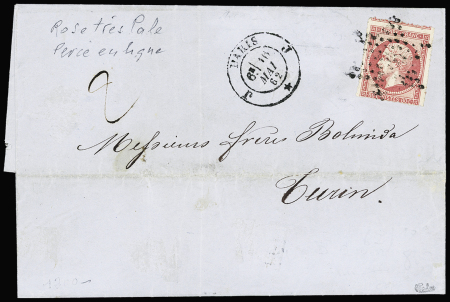 Rose très Pale
Percé en ligne
2
PARIS J
6E 16
MAI
62
J
Messieurs frères Bolmida
Turin.